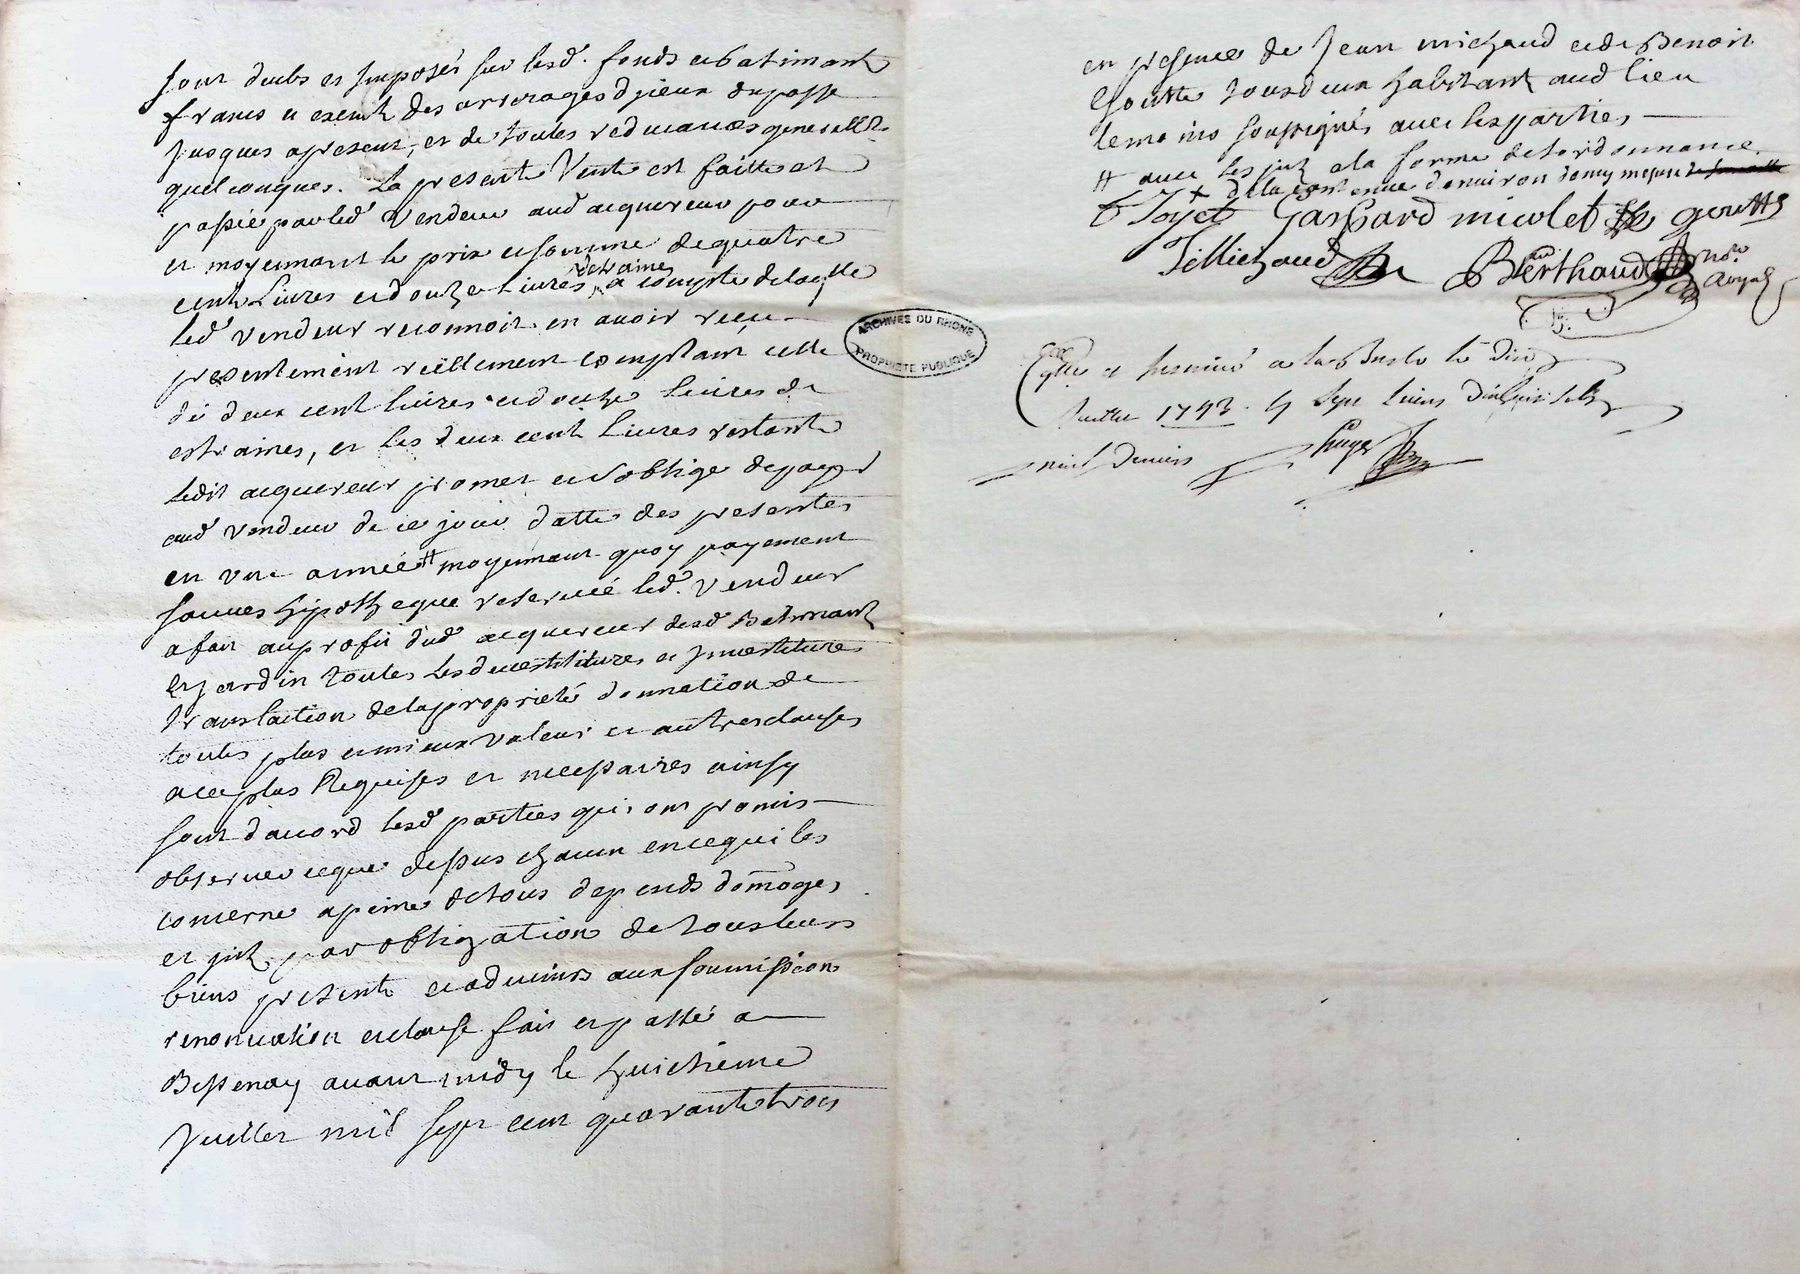 sont deubs et Imposés sur lesd. fonds et batimant
francs et exempt des arrerages d'jceux du passe
jusques apresent, et de toutes reduances generalles
quelconques. La presente Vente est faitte et
passée par led Vendeur aud acquereur pour
et moyennant le prix et somme de quatre
cent Livres et douze Livres détraines a compte de laqlle
led vendeur reconnoit en avoir reçu
presentement réellement comptant celle
de deux cent livres et douze livres de
estraines, et les deux cent Livres restante
ledit acquereur promet et s'oblige de payer
aud vendeur de ce jour datte des presentes
en une année # moyennant quoy payement
sauves hipotheque reservée led. vendeur
a fait au profit dud acquereur desd Batimant
et Jardin toutes les devestitures et jnvestitures
translaction de la proprieté donnation de
toutes plus et mieux valeur et autres clauses
a ce plus Requises et necessaires ainsy
sont d'acord lesd parties qui ont promis
observer ce que dessus chacun en ce qui les
concerne a peine de tous depends domages
et jnts par obligation de tous leurs
biens presents et advenirs aux soumission
renonciation et clause fait et passé a
Bessenay avant midy le huictieme
Juillet mil sept cent quarante trois
en presence de Jean michaud et de Benoit
Goutte tous deux habitant aud lieu
temoins soussignés avec les parties
# avec les jnts a la forme de l'ordonnance
+ de la contenue d'environ demy mesure
Gaspard micolet goutte
J Michaud Berthaud nore royal
ARCHIVES DU RHONE
PROPRIÉTÉ PUBLIQUE
Cllé et Insinué a la Bresle le dix
Juillet 1743. Sept livres
neuf deniers